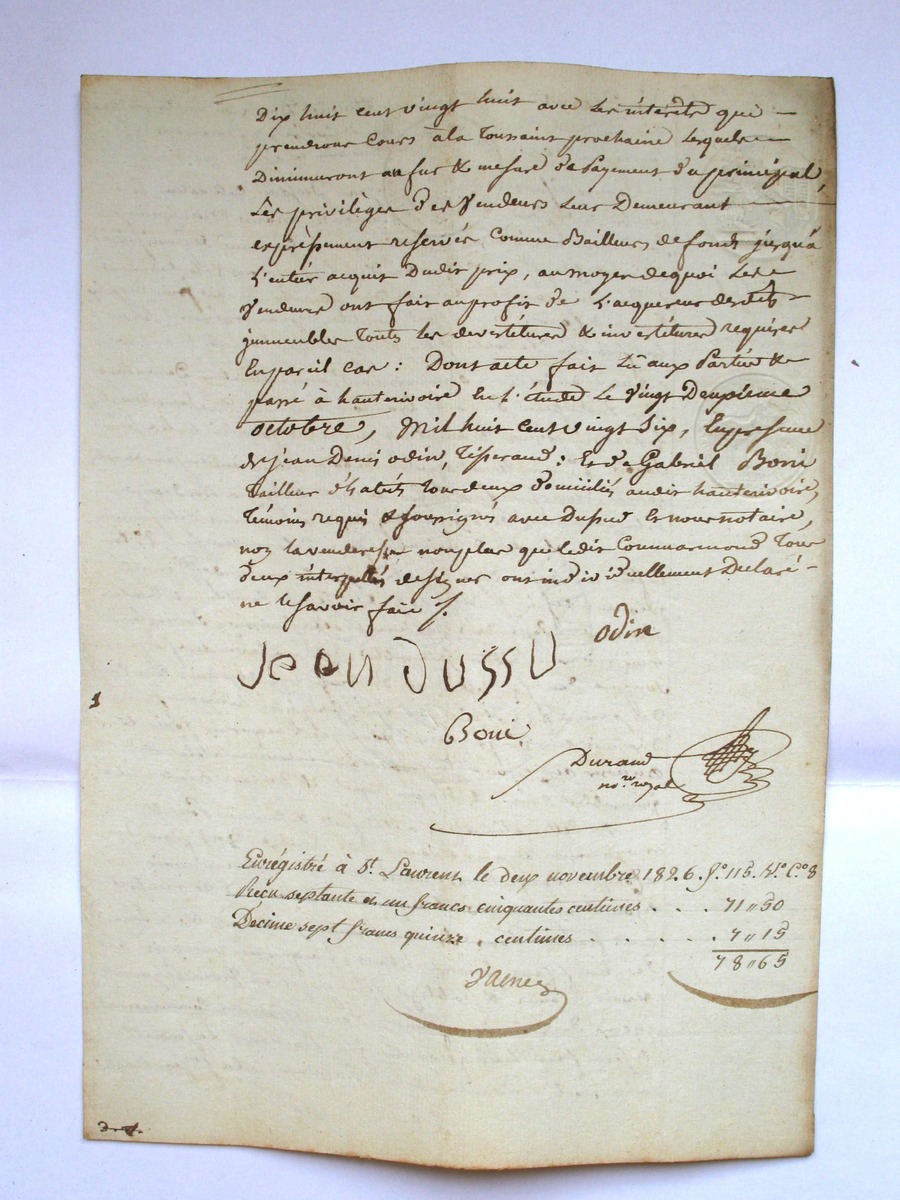 Dix huit cent vingt huit avec les intérêts que
prendront cours à la Toussaint prochaine lesquels
Diminuront au fur & mesure de Payement du principal,
Les privilèges des Vendeurs leur Demeurant
expréssement reservés comme Bailleurs de fonds jusqu'à
l'entier acquit Dudit prix, au moyen de quoi Les
Vendeurs ont fait au profit de l'acquereur desdits
immeubles touts les devestitures & investitures requises
En pareil cas : Dont acte fait Lû aux Parties &
passé à hauterivoire En l'étude Le Vingt Deuxieme
octobre, Mil huit cent vingt Six, En presence
de Jean Denis odin, Tisserand : Et de Gabriel Boni
Tailleur d'habits Tous deux domiciliés audit hauterivoire,
Témoins requis & soussignés avec Dussud Et nous notaire,
non la venderesse non plus que ledit Commarmond Tous
deux interpellés de signer ont individuellement Declaré
ne le savoir faire /.
odin
Jean dussu
Boni
Durand
no.re royal
Enrégistré à St. Laurent le deux novembre 1826. fo. 115. Vo. Co. 8
Reçu septante et un francs cinquantes centimes . . . 71 " 50
Décime sept francs quinze centimes . . . . . 7 " 15
78 " 65